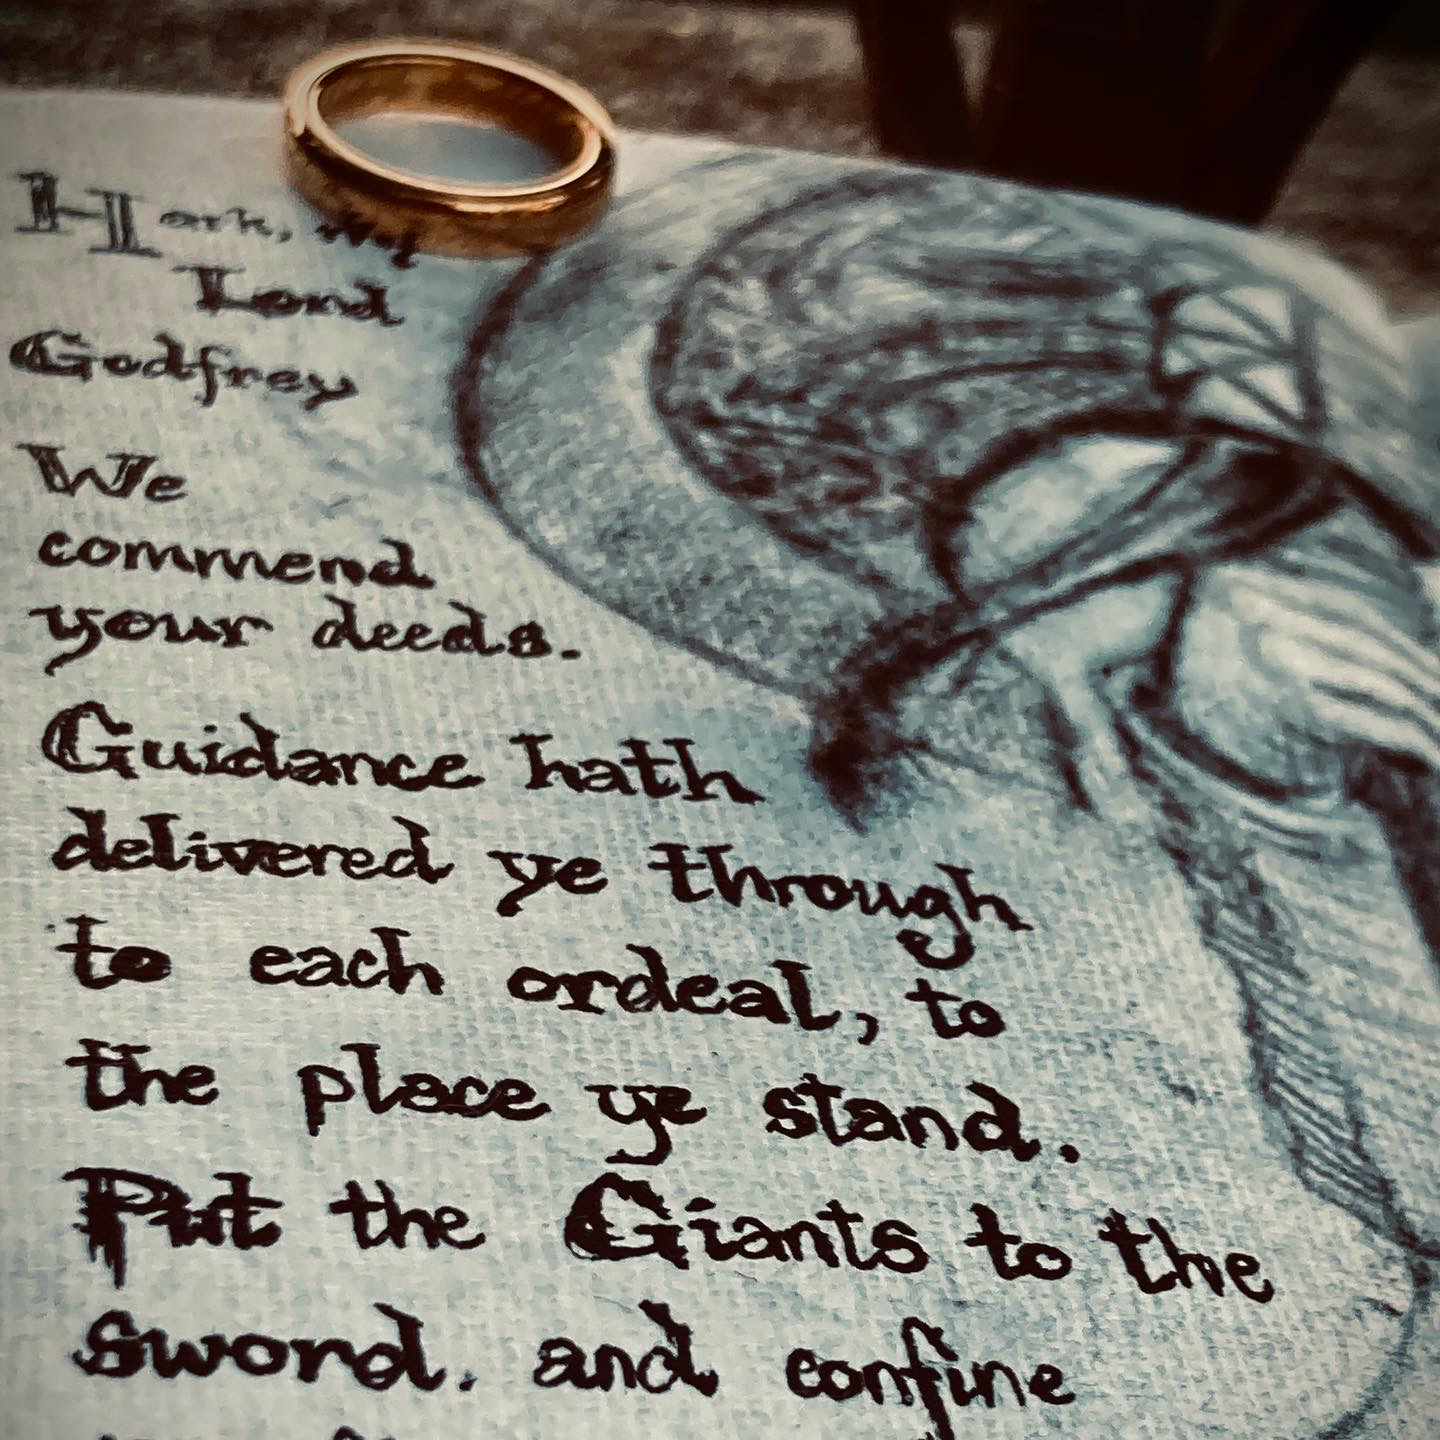 Hark, my
Lord
Godfrey
We
commend
your deeds.
Guidance hath
delivered ye through
to each ordeal, to
the place ye stand.
Put the Giants to the
sword. and confine